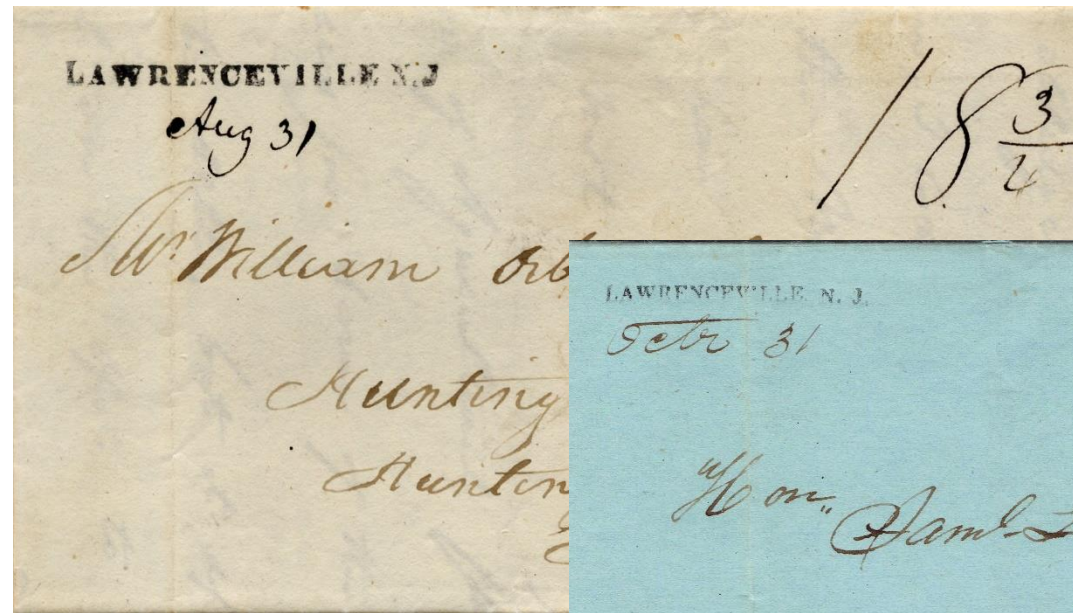 LAWRENCEVILLE N.J
Aug 31
18 3/4
Mr William
Hunting
Huntin
LAWRENCEVILLE. N. J.
Octr 31
Hon,,
Saml